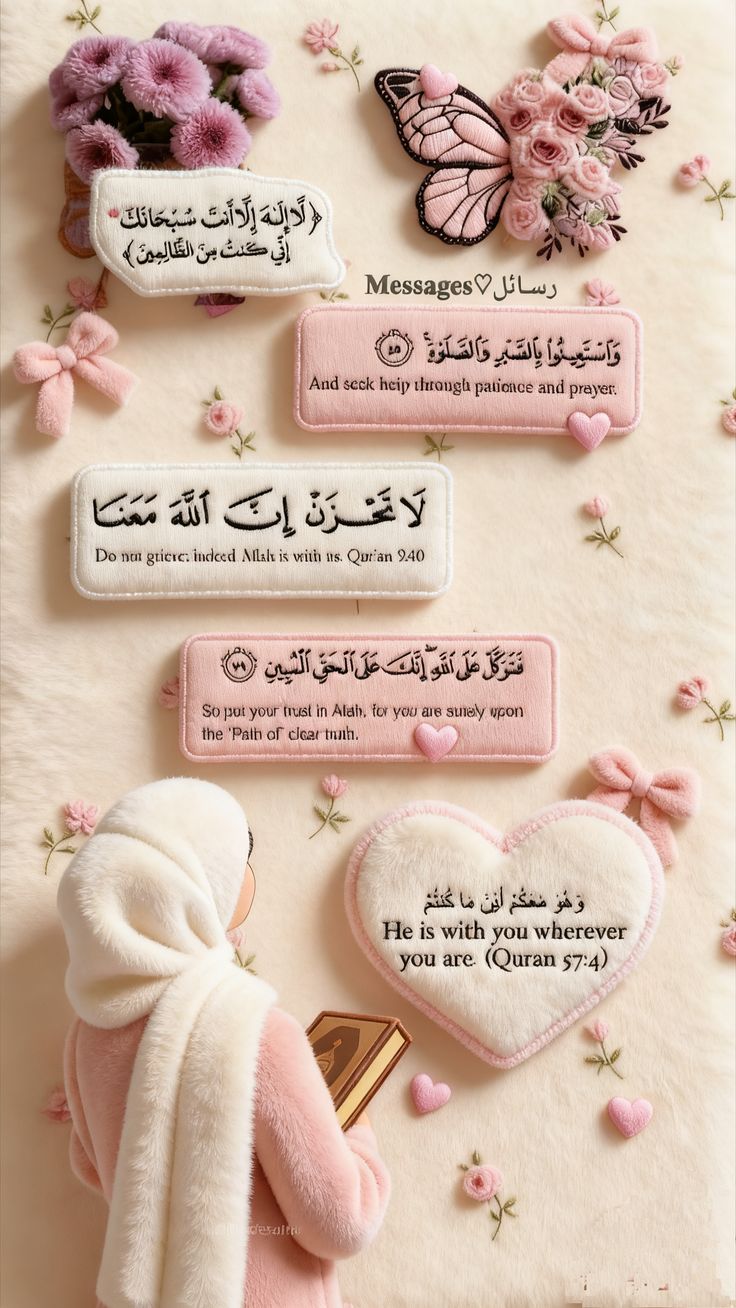 ﴿لَا إِلَٰهَ إِلَّا أَنتَ سُبْحَانَكَ
إِنِّي كُنتُ مِنَ الظَّالِمِينَ﴾
Messages♡رسائل
وَاسْتَعِينُوا بِالصَّبْرِ وَالصَّلَوٰةِ ۚ ٤٥
And seek help through patience and prayer.
لَا تَحْزَنْ إِنَّ ٱللَّهَ مَعَنَا
Do not grieve: indeed Allah is with us. Qur'an 9:40
فَتَوَكَّلْ عَلَى ٱللَّهِ ۖ إِنَّكَ عَلَى ٱلْحَقِّ ٱلْمُبِينِ ٧٩
So put your trust in Allah, for you are surely upon
the 'Path of' clear truth.
وَهُوَ مَعَكُمْ أَيْنَ مَا كُنْتُمْ
He is with you wherever
you are. (Quran 57:4)